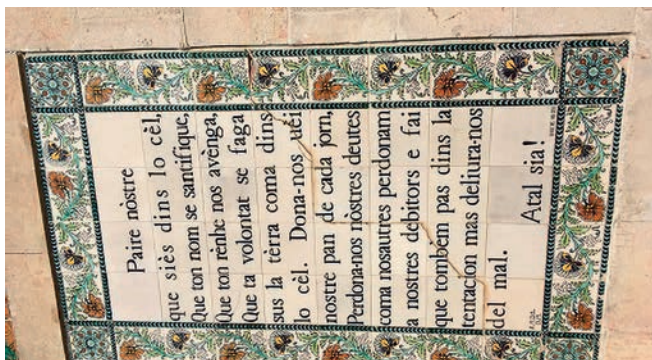 Paire nòstre
que siès dins lo cèl,
Que ton nom se santifique,
Que ton rènhe nos avènga,
Que ta volontat se faga
sus la tèrra coma dins
lo cèl. Dona-nos uèi
nostre pan de cada jorn,
Perdona-nos nòstres deutes
coma nosautres perdonam
a nostres debitors e fai
que tombèm pas dins la
tentacion mas deliura-nos
del mal.
Atal sia!